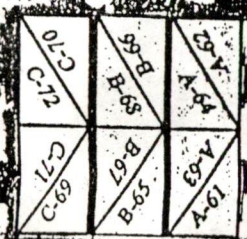 C-70
C-72
B-66
B-68
A-62
A-64
C-71
C-69
B-67
B-65
A-63
A-61